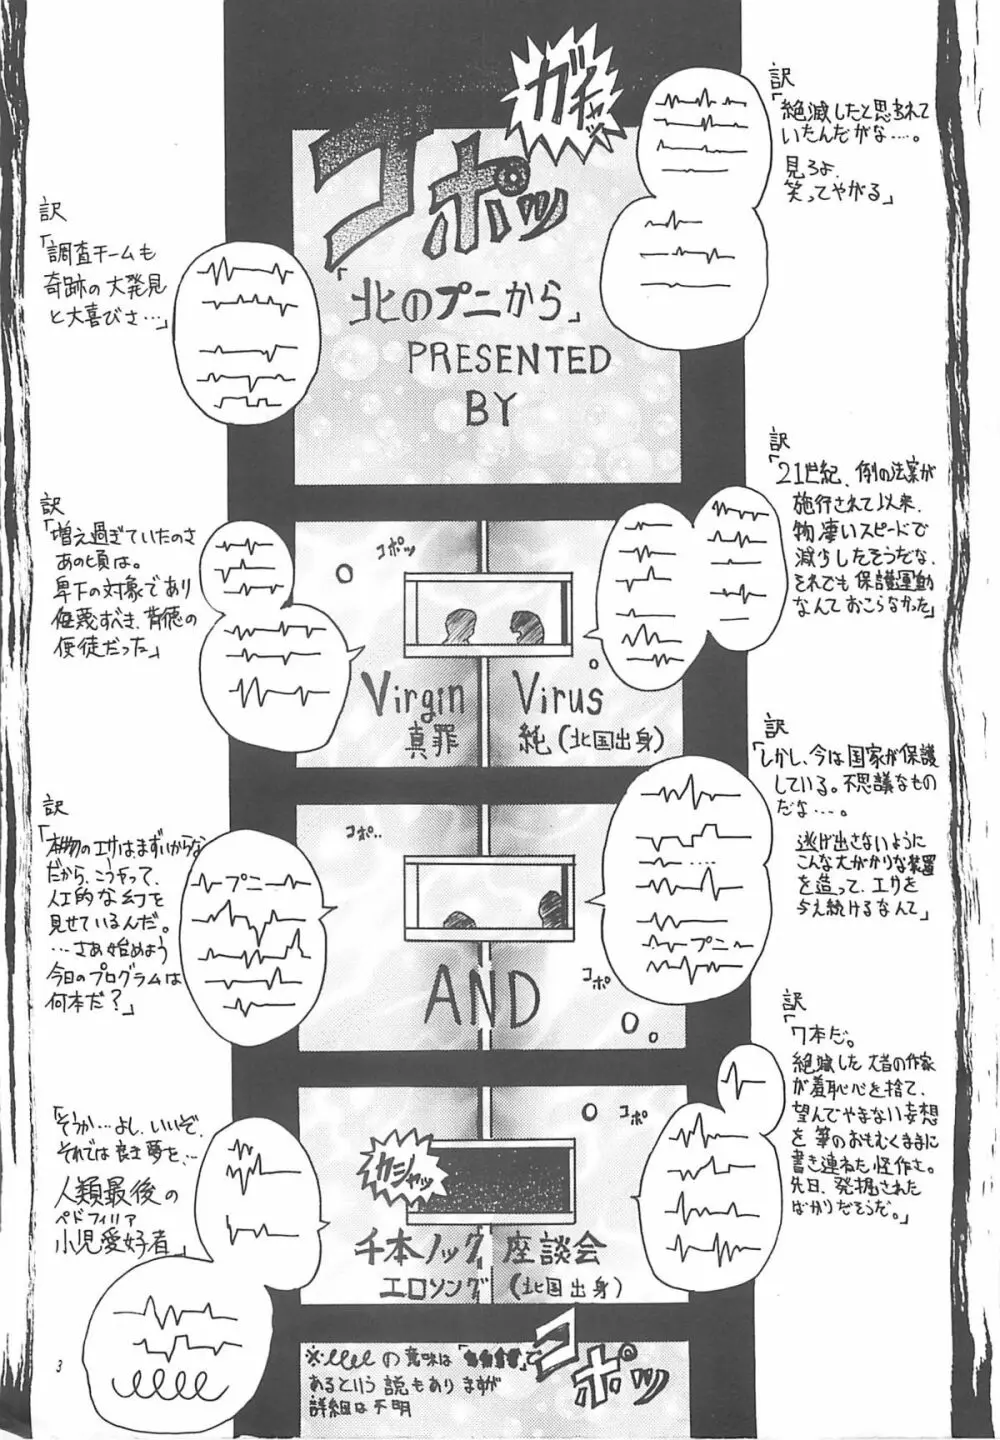 ガチャッ
訳
「絶滅したと思われて
いたんだがな……。
見ろよ
笑ってやがる」
コポッ
訳
「調査チームも
奇跡の大発見
と大喜びさ…」
「北のプニから」
PRESENTED
BY
訳
「21世紀、例の法案が
施行されて以来、
物凄いスピードで
減少したそうだな、
それでも保護運動
なんておこらなかった」
訳
「増え過ぎていたのさ
あの頃は。
卑下の対象であり
侮蔑すべき、背徳の
使徒だった」
コポッ
Virgin Virus
真罪 純(北国出身)
訳
「しかし、今は国家が保護
している。不思議なもの
だな……。
逃げ出さないように
こんな大がかりな装置
を造って、エサを
与え続けるなんて」
プニ
訳
「本物のエサはまずいからな
だから、こうやって、
人工的な幻を
見せているんだ。
…さあ始めよう
今日のプログラムは
何本だ？」
プニ
コポ..
コポ
AND
訳
「7本だ。
絶滅した大昔の作家
が羞恥心を捨て、
望んでやまない妄想
を筆のおもむくままに
書き連ねた怪作さ。
先日、発掘された
ばかりだそうだ。」
「そうか…よし、いいぞ、
それでは良き夢を、…
人類最後の
ペドフィリア
小児愛好者」
コポ
カシャッ
千本ノック 座談会
エロソング (北国出身)
コポッ
の意味は
あるという説もありますが
詳細は不明
3